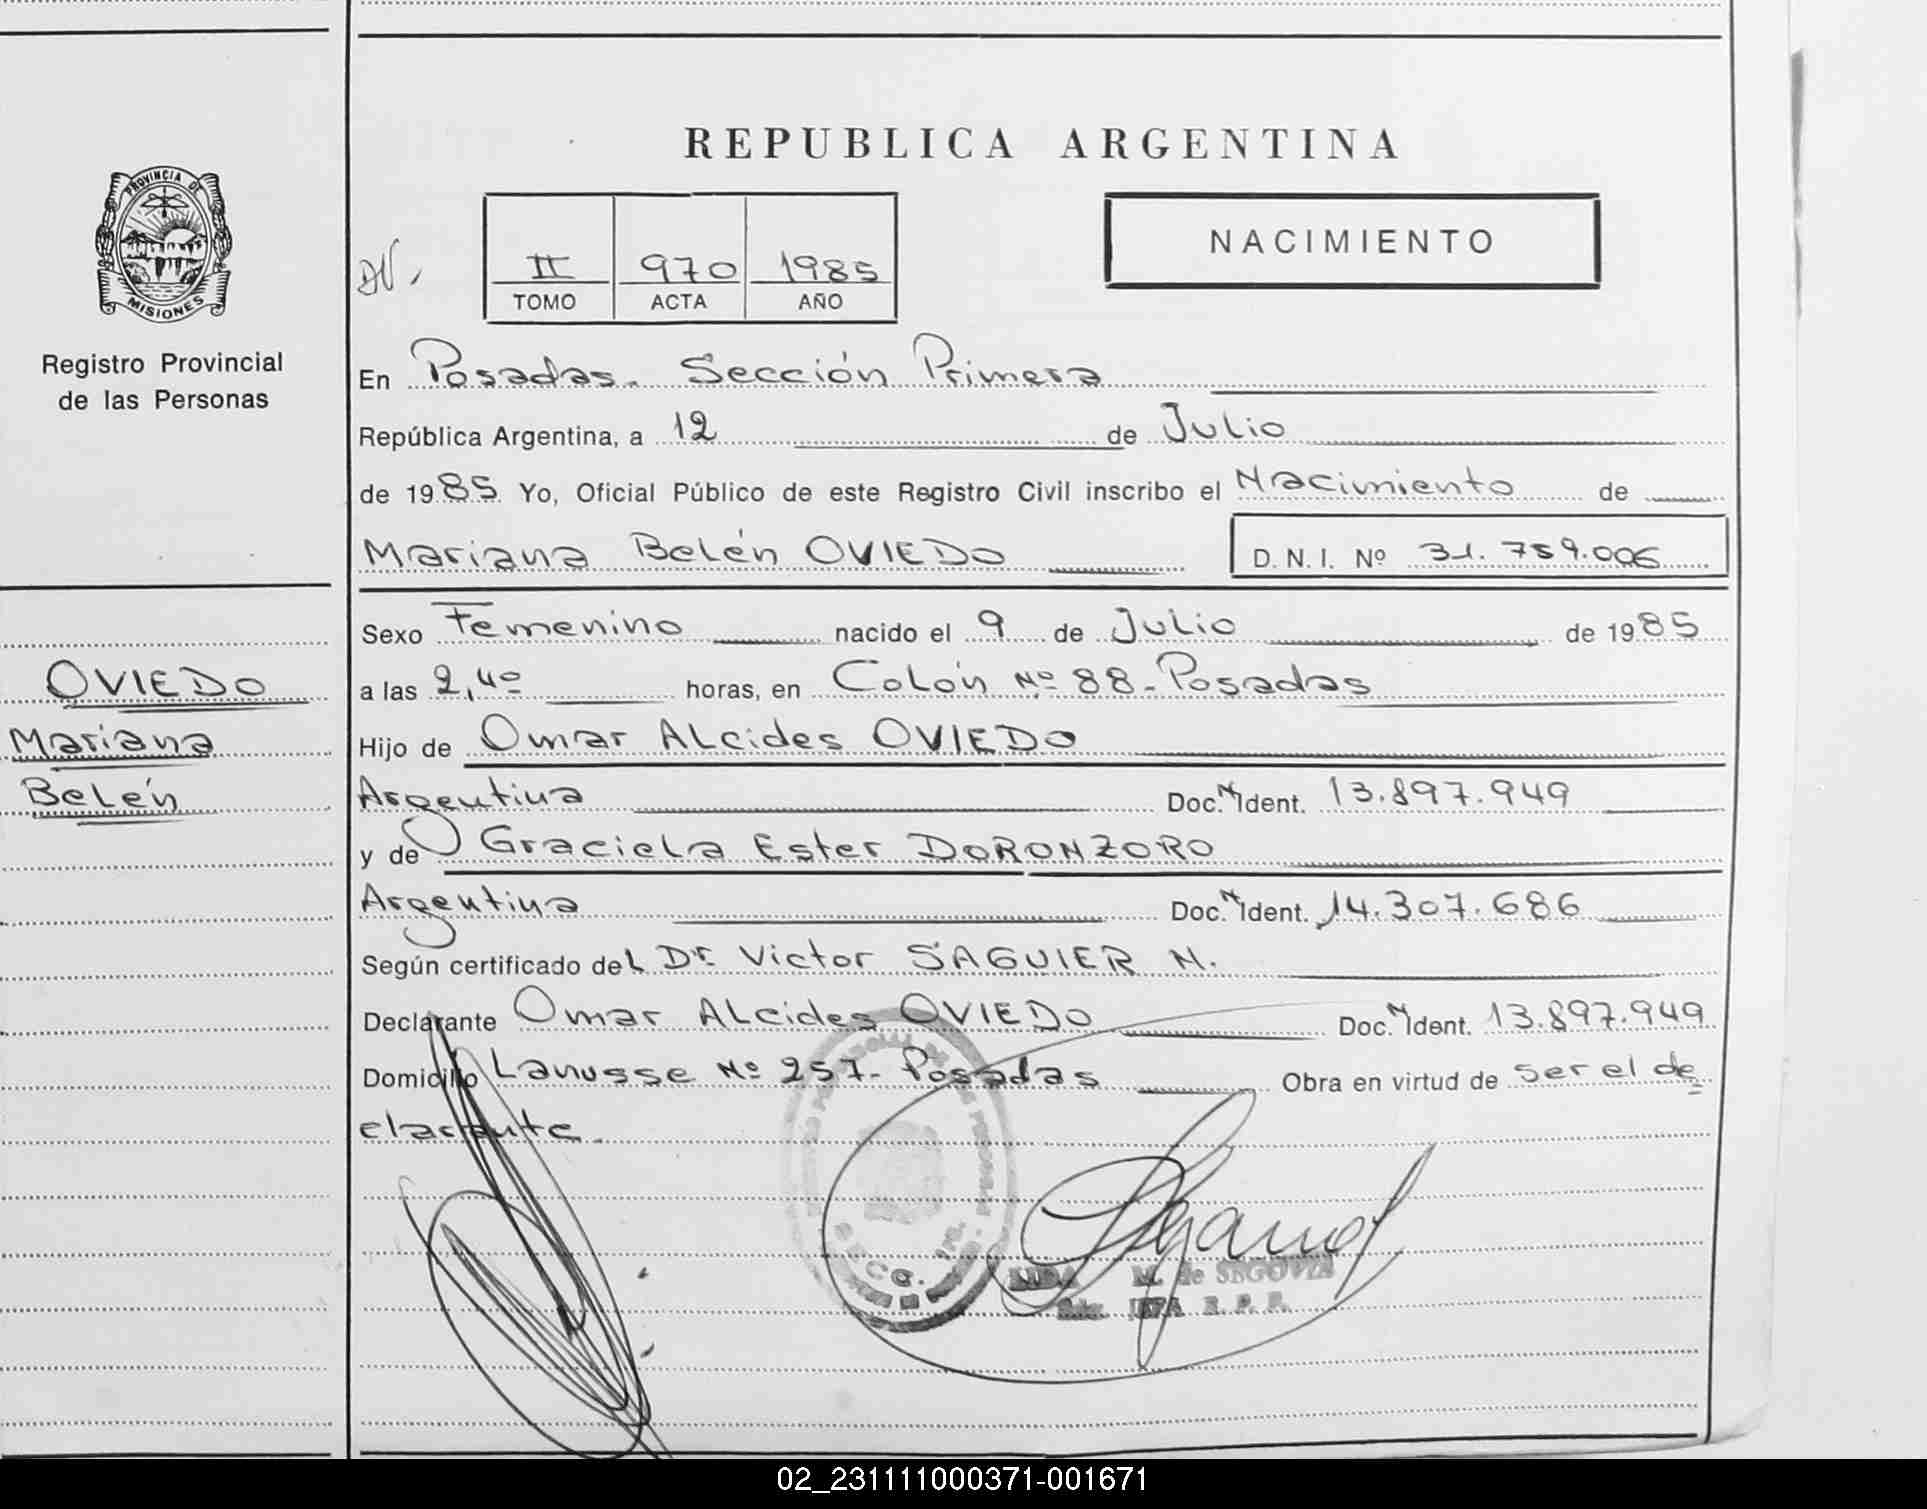 REPUBLICA ARGENTINA
PROVINCIA DE
MISIONES
Registro Provincial
de las Personas
II 970 1985
TOMO ACTA AÑO
NACIMIENTO
En Posadas. Sección Primera
República Argentina, a 12 de Julio
de 1985 Yo, Oficial Público de este Registro Civil inscribo el Nacimiento de
Mariana Belén OVIEDO D.N.I. Nº 31.759.006
Sexo Femenino nacido el 9 de Julio de 1985
OVIEDO
Mariana
Belén
a las 2,40 horas, en Colón Nº 88-Posadas
Hijo de Omar Alcides OVIEDO
Argentina Doc. N Ident. 13.897.949
y de Graciela Ester DORONZORO
Argentina Doc. N Ident. 14.307.686
Según certificado del Dr Victor SAGUIER N.
Declarante Omar Alcides OVIEDO Doc. N Ident. 13.897.949
Domicilio Lanusse Nº 257- Posadas Obra en virtud de ser el de=
clarante.
M. de SEGOVIA
JEFA R. P. P.
02_231111000371-001671